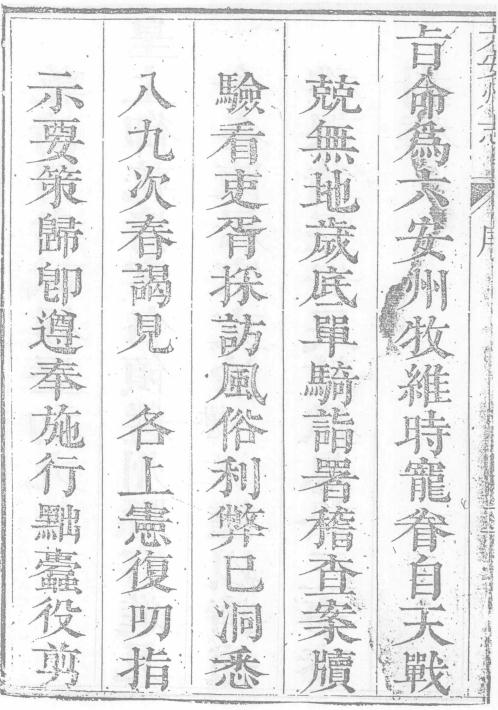 旨命爲六安州牧維時寵眷自天戰
兢無地歲底單騎詣署稽查案牘
驗看吏胥採訪風俗利弊已洞悉
八九次春謁見　各上憲復叨指
示要策歸卽遵奉施行黜蠹役剪